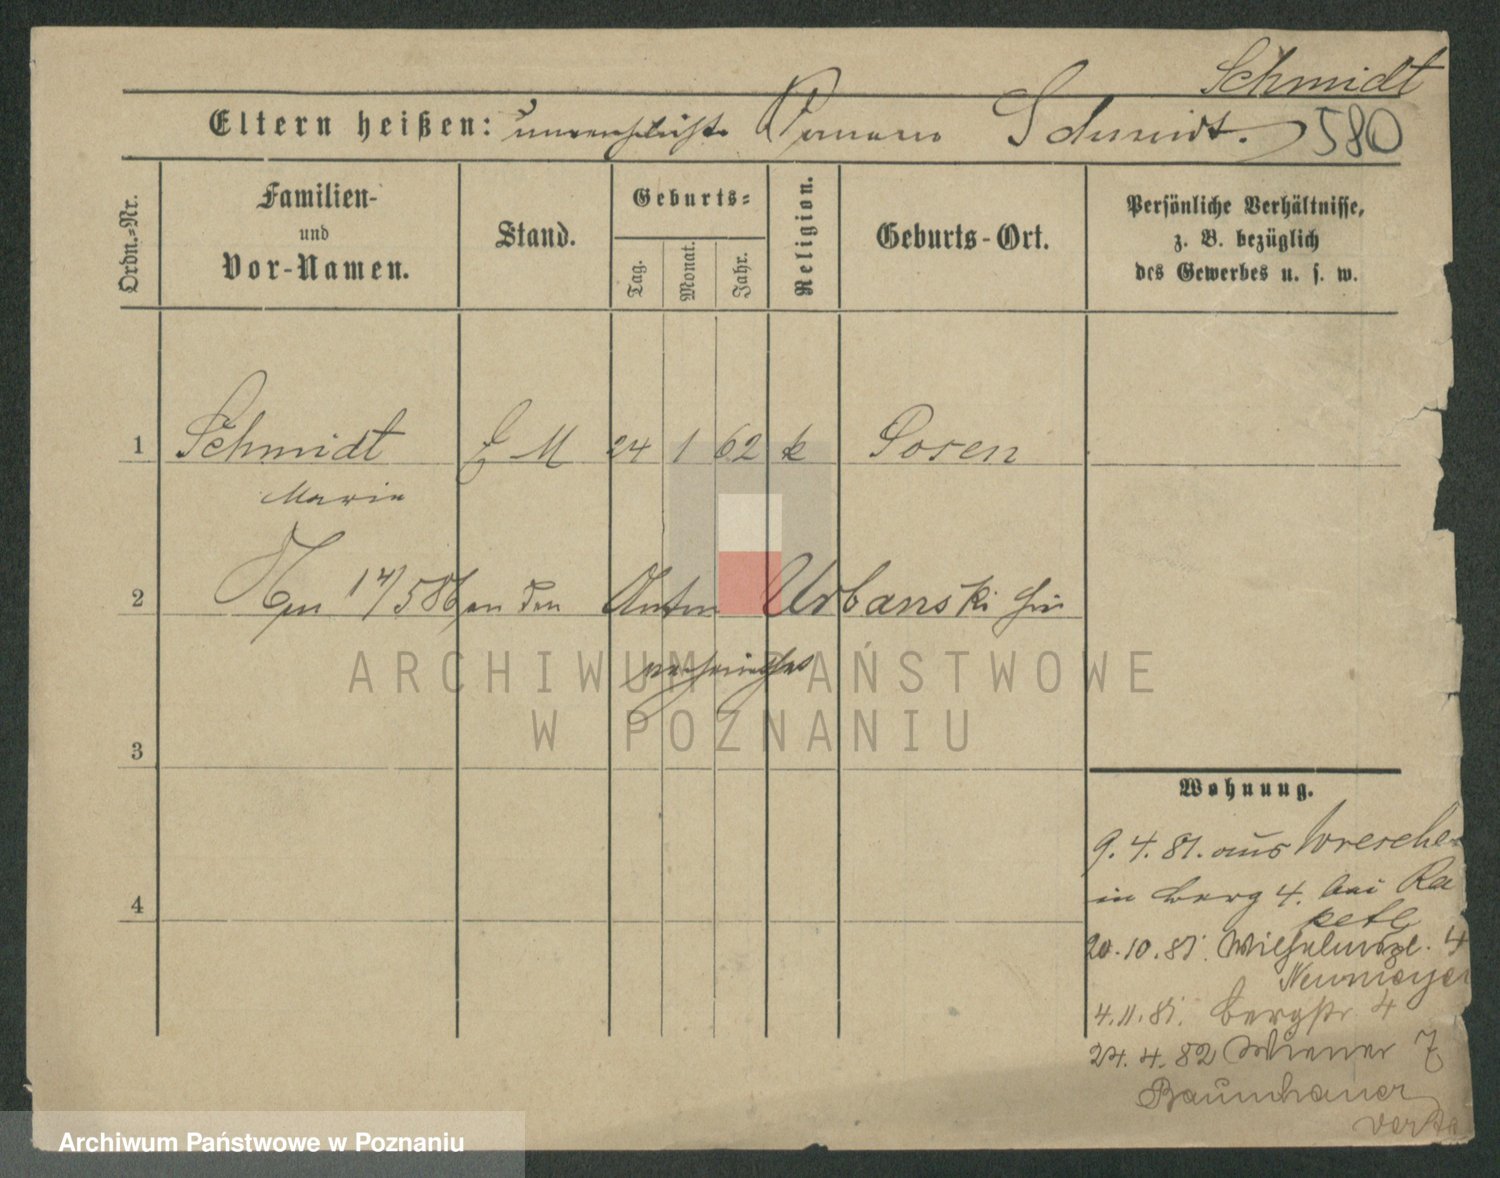 Schmidt
Eltern heißen: unverehelichte Schmidt. 580
Ordn.=Nr.
Familien-
und
Vor-Namen.
Stand.
Geburts=
Tag.
Monat.
Jahr.
Religion.
Geburts-Ort.
Persönliche Verhältnisse,
z. B. bezüglich
des Gewerbes u. s. w.
1 Schmidt M 24 1 62 k Posen
Marie
2 14/5 86 an den Anton Urbanski
3
4
Wohnung.
9. 4. 81. aus Wresche-
in Berg 4. bei Ra
petz
20. 10. 81. Wilhelmspl. 4
Neumeyer
4. 11. 81. Bergstr 4
24. 4. 82 Wiener 7
Baumhauer
ARCHIWUM PAŃSTWOWE
W POZNANIU
Archiwum Państwowe w Poznaniu